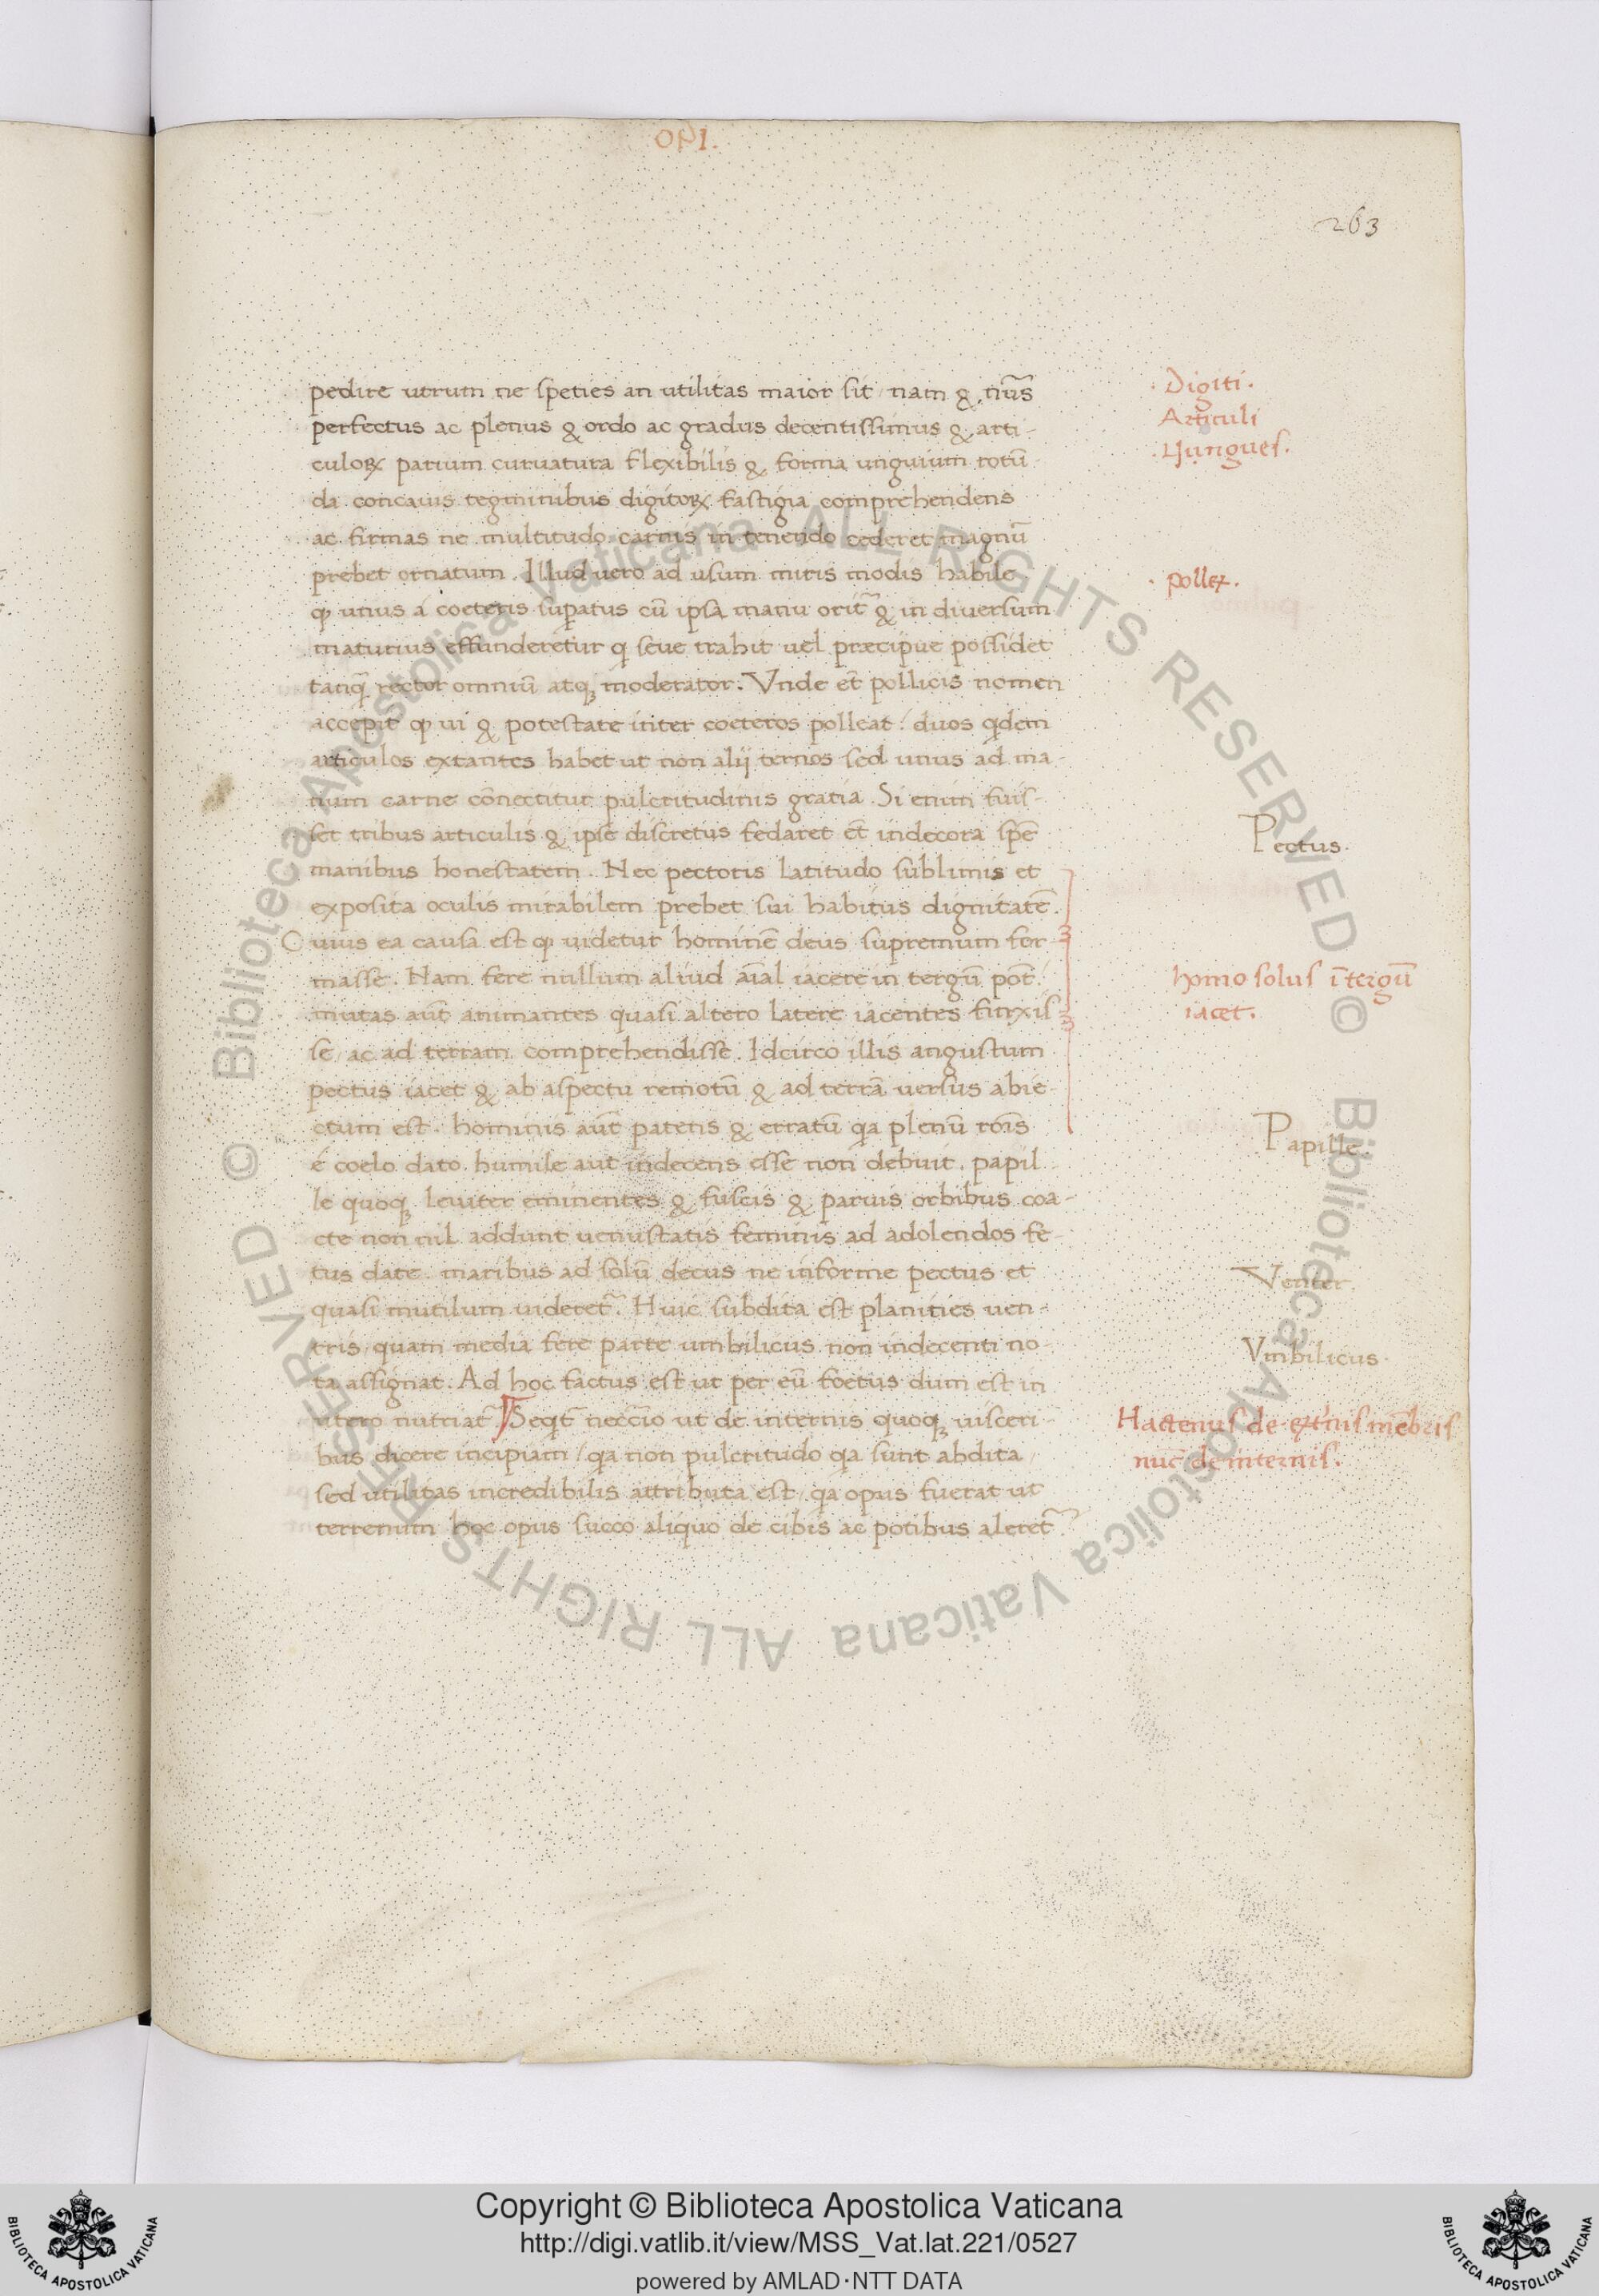 OPI.
263
pedire utrum ne speties an utilitas maior sit / nam & nũs
perfectus ac plenus & ordo ac gradus decentissimus & arti-
culoꝝ parium curuatura flexibilis & forma unguium rotũ
da concauis tegminibus digitoꝝ fastigia comprehendens
ac firmas ne multitudo carnis in tenendo cederet magnũ
prebet ornatum. Illud uero ad usum miris modis habile
ꝙ unus a coeteris supatus cũ ipsa manu orit̃ & in diuersum
maturius effunderetur q seue trahit uel præcipue possidet
tanq̃ rector omniũ atq; moderator. Vnde et̃ pollicis nomen
accepit ꝙ ui & potestate inter coeteros polleat / duos qdem
articulos extantes habet ut non alij ternos sed unus ad ma-
num carne cõnectitur pulcritudinis gratia. Si enim fuis-
set tribus articulis & ipse discretus fedaret et̃ indecora sp̃e
manibus honestatem. Nec pectoris latitudo sublimis et
exposita oculis mirabilem prebet sui habitus dignitatẽ.
Cuius ea causa est ꝙ uidetur hominẽ deus supremum for-
masse. Nam fere nullum aliud aĩal iacere in tergũ pot̃.
mutas aut̃ animantes quasi altero latere iacentes finxis-
se / ac ad terram comprehendisse. Idcirco illis angustum
pectus iacet & ab aspectu remotũ & ad terrã uersus abie-
ctum est. hominis aut̃ patens & erratũ qa plenũ rõis
é coelo dato humile aut indecens esse non debuit. papil
le quoq; leuiter eminentes & fuscis & paruis orbibus coa-
cte non nil addunt uenustatis feminis ad adolendos fe-
tus date. maribus ad solũ decus ne informe pectus et
quasi mutilum uideret̃. Huic subdita est planities uen-
tris / quam media fere parte umbilicus non indecenti no-
ta assignat. Ad hoc factus est ut per eũ foetus dum est in
utero nutriat̃ Seqt̃ neccĩo ut de internis quoq; uisceri-
bus dicere incipiam / qa non pulcritudo qa sunt abdita /
sed utilitas incredibilis attributa est / qa opus fuerat ut
terrenum hoc opus succo aliquo de cibis ac potibus aleret̃
. Digiti.
Articuli
. Vngues.
. pollex.
Pectus.
homo solus ĩ tergũ
iacet.
Papille.
Venter.
Vmbilicus.
Hactenus de extnis mẽbris
nũc de internis.
© Biblioteca Apostolica Vaticana ALL RIGHTS RESERVED © Biblioteca Apostolica Vaticana ALL RIGHTS RESERVED
Copyright © Biblioteca Apostolica Vaticana
http://digi.vatlib.it/view/MSS_Vat.lat.221/0527
powered by AMLAD·NTT DATA
BIBLIOTECA APOSTOLICA VATICANA
BIBLIOTECA APOSTOLICA VATICANA